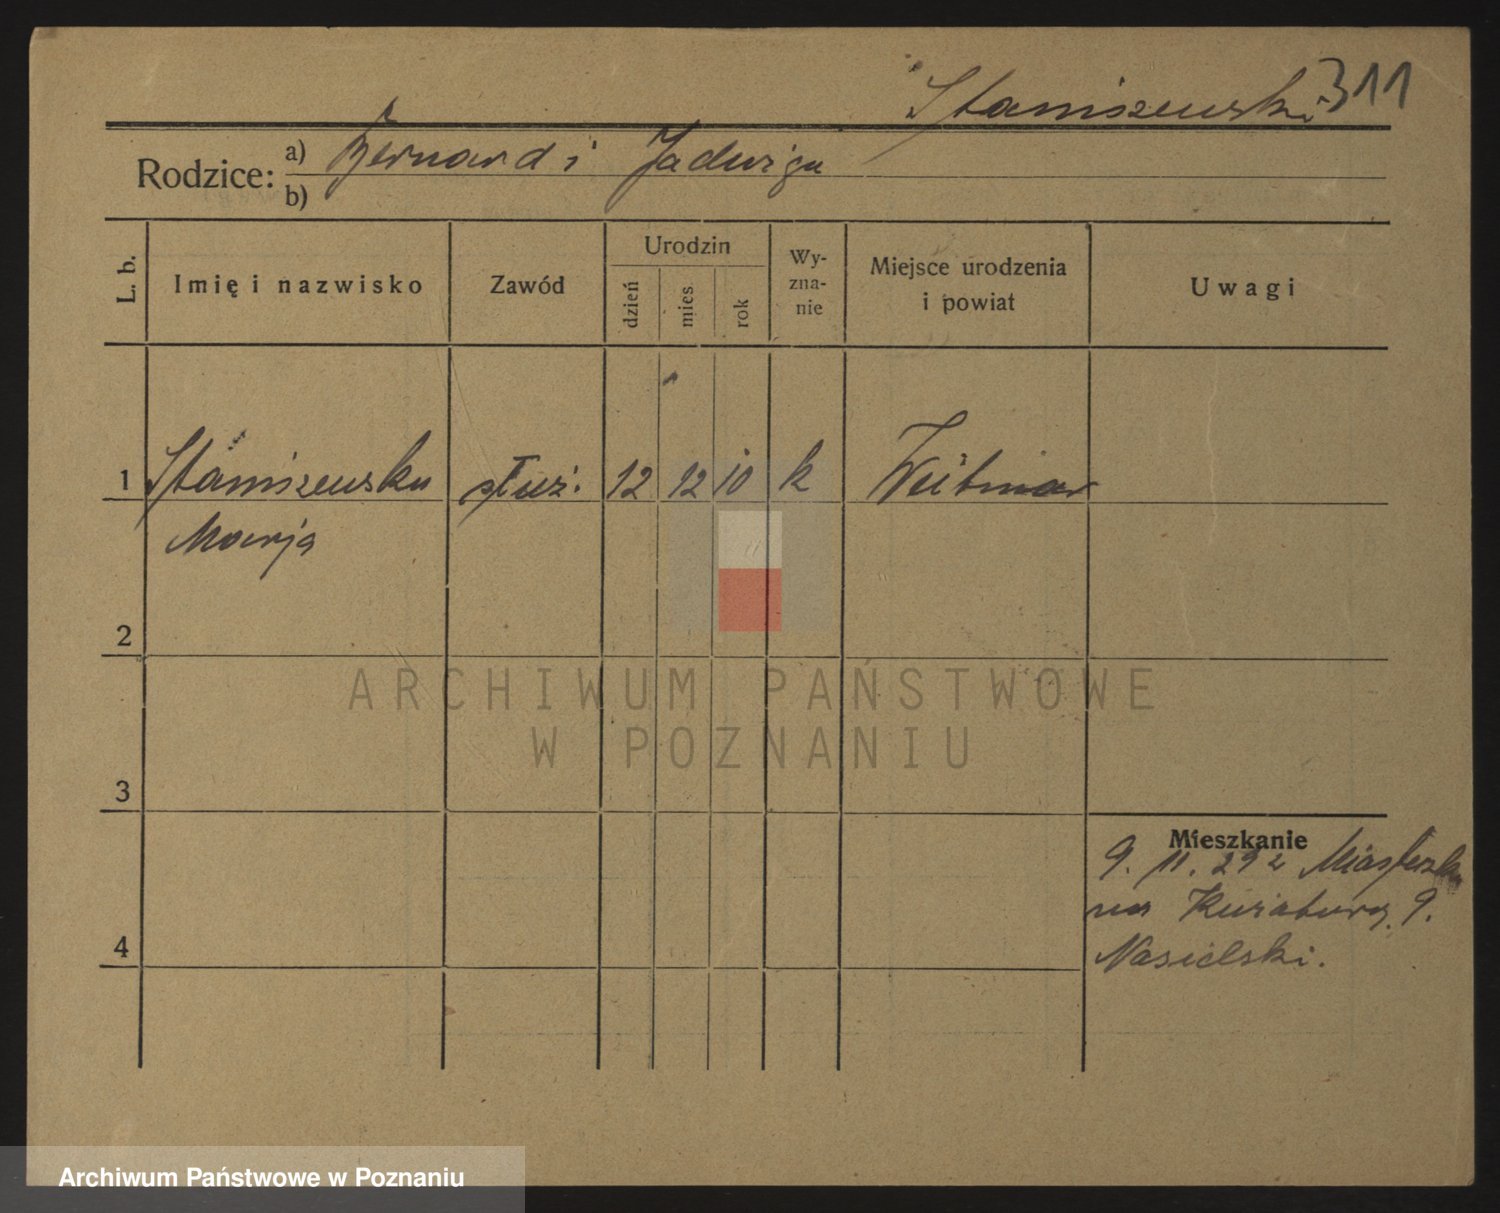 Staniszewski 311
Rodzice: a) Bernard i Jadwiga
b)
L. b.
Imię i nazwisko
Zawód
Urodzin
dzień
mies
rok
Wy-
zna-
nie
Miejsce urodzenia
i powiat
Uwagi
1 Staniszewska służ. 12 12 10 k Weitmar
Marja
2
3
4
Mieszkanie
9. 11. 29 z Miasteczka
na 9.
Nasielski.
ARCHIWUM PAŃSTWOWE
W POZNANIU
Archiwum Państwowe w Poznaniu